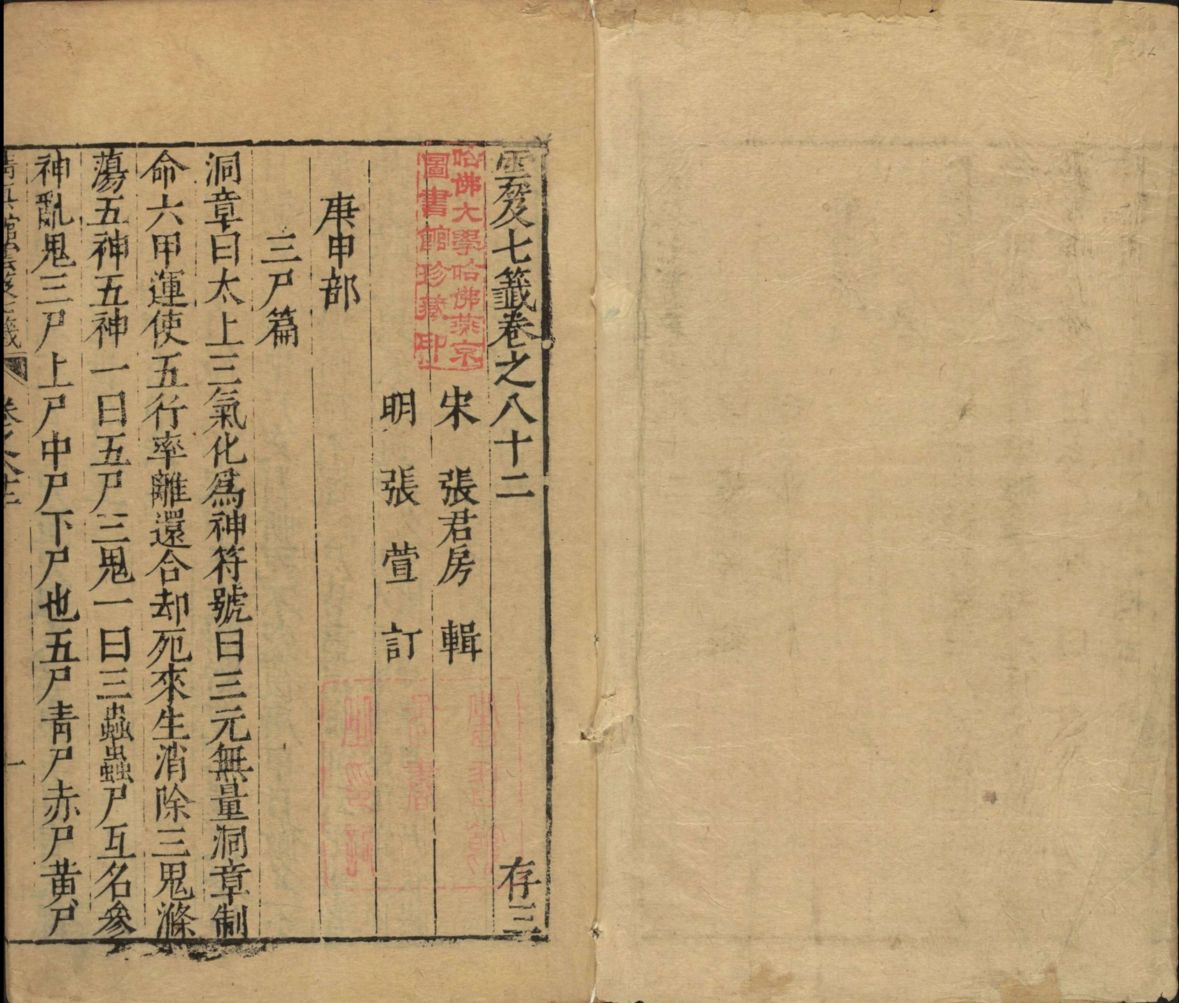 雲笈七籤卷之八十二 存三
宋 張君房 輯
明 張萱 訂
庚申部
三尸篇
洞章曰太上三氣化爲神符號曰三元無量洞章制
命六甲運使五行率離還合却死來生消除三鬼滌
蕩五神五神一曰五尸三鬼一曰三蟲蟲尸互名參
神亂鬼三尸上尸中尸下尸也五尸青尸赤尸黃尸
卷之八十二 一
哈佛大學哈佛燕京
圖書館珍藏印